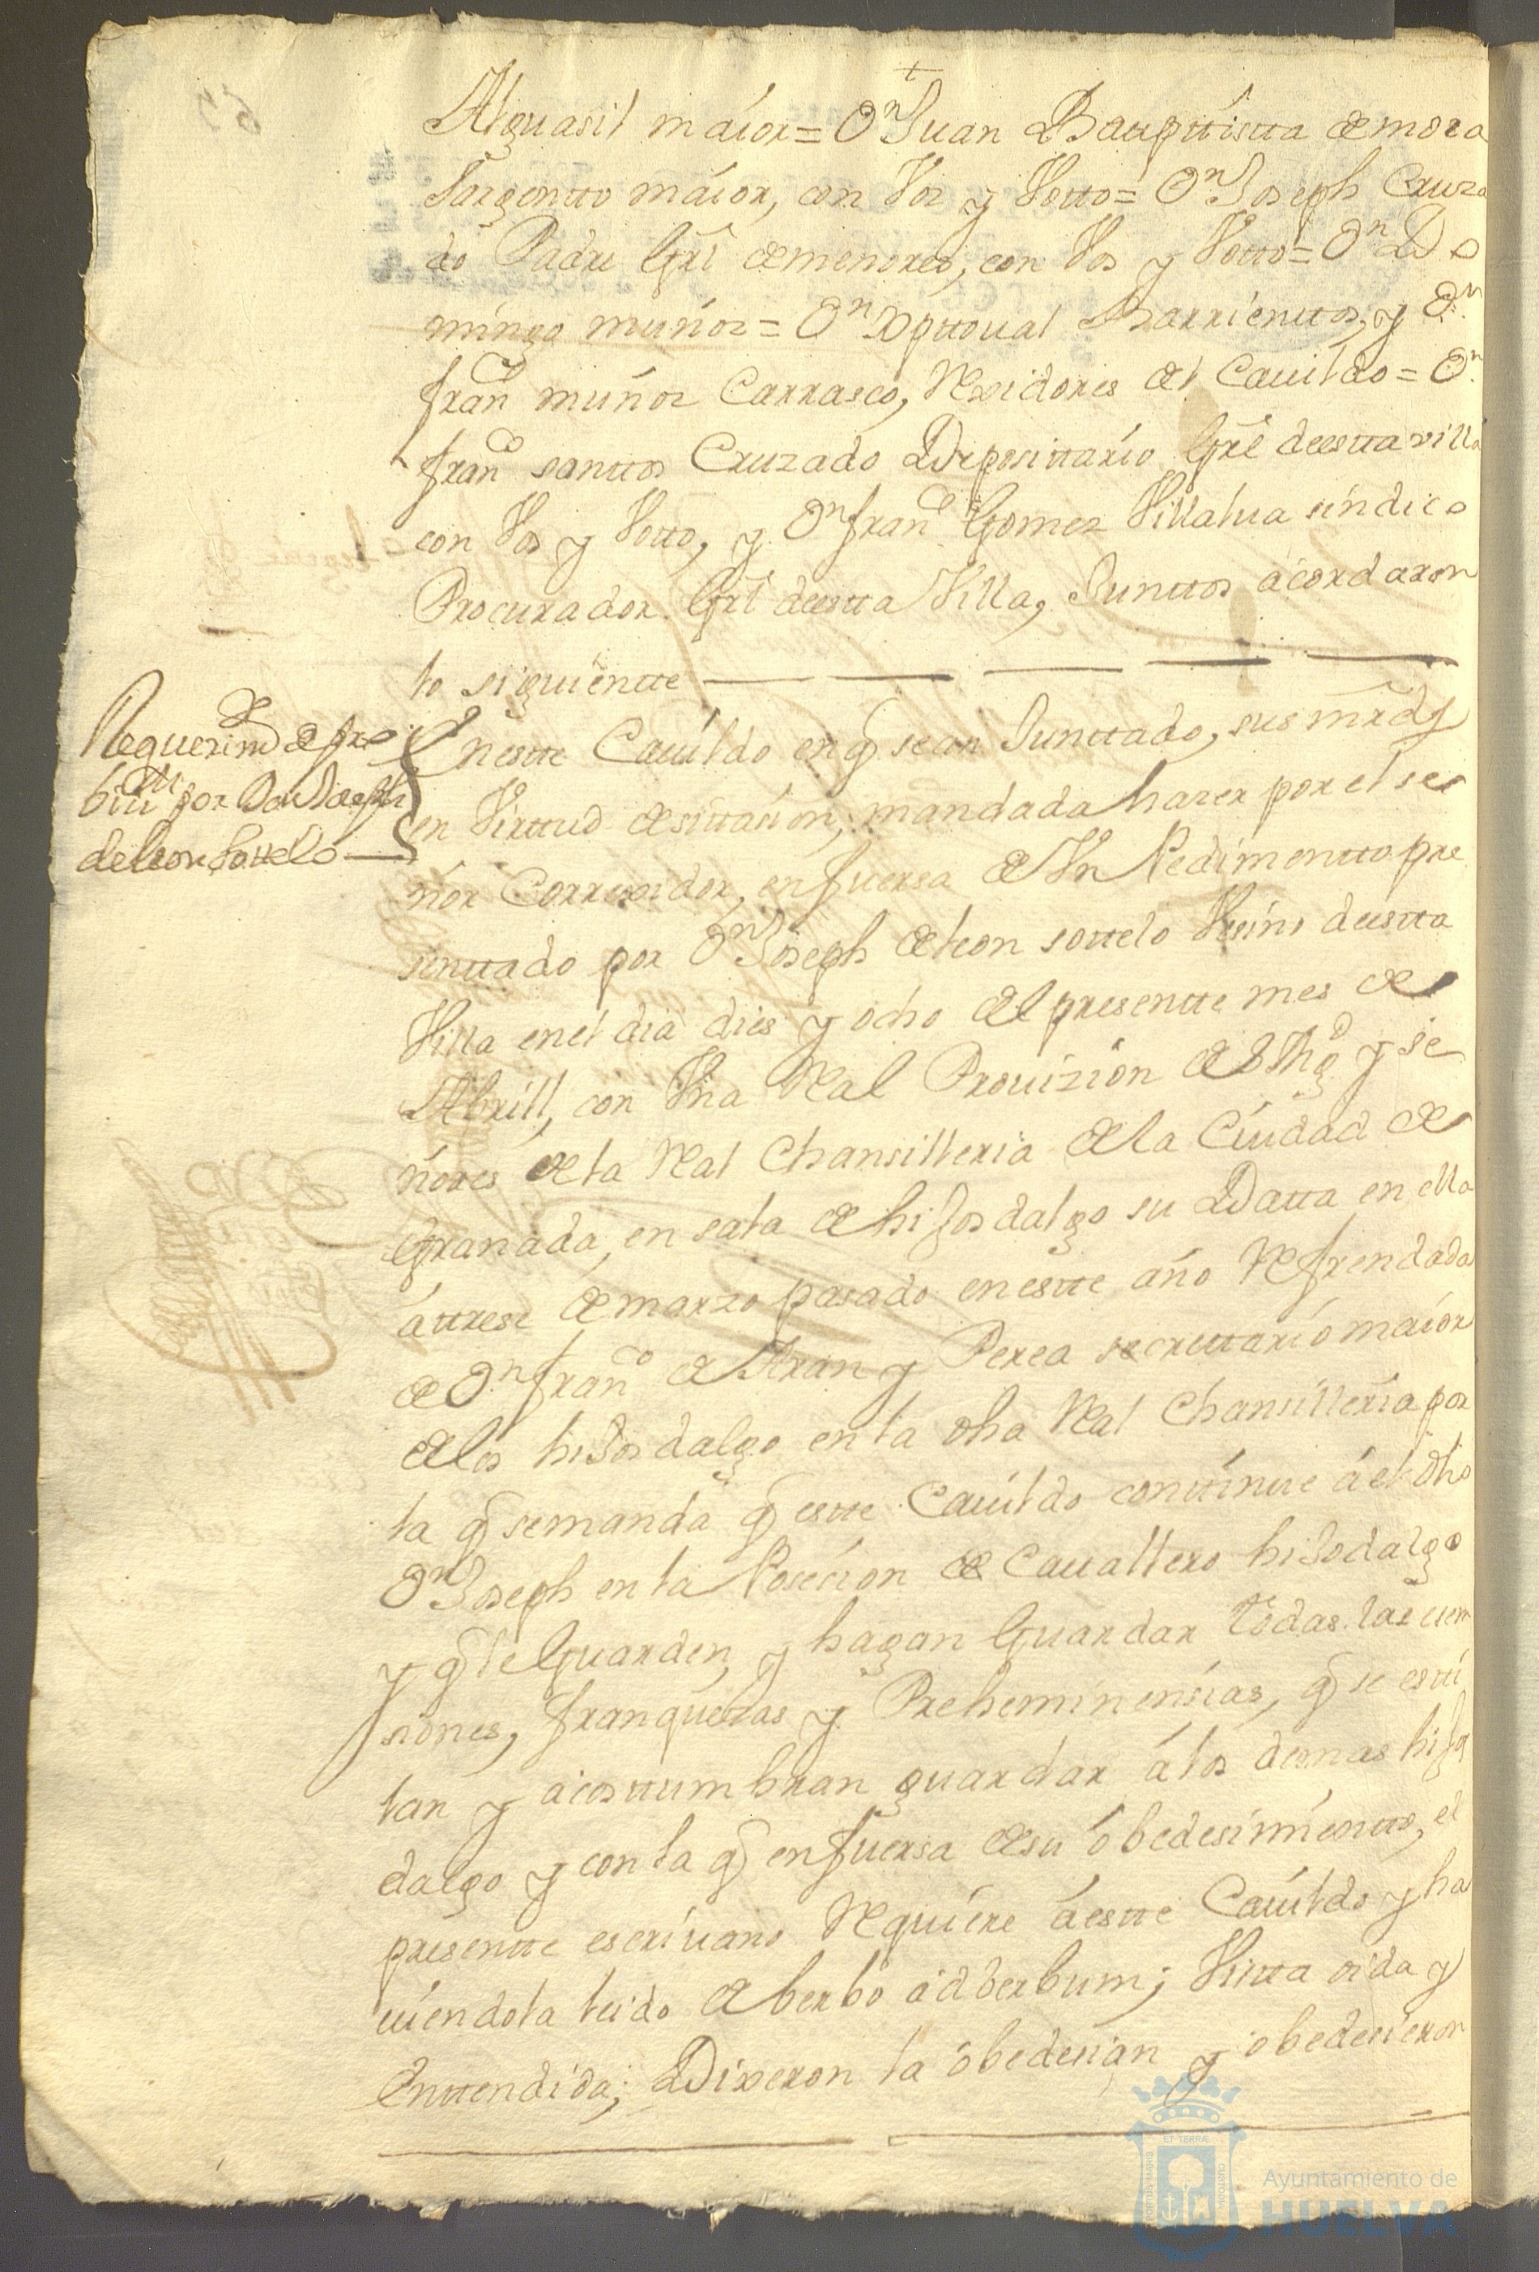 Alguasil maior = Dn Juan Baupttistta de mora
Sargentto maior, con Vos y Votto = Dn Joseph Cruza
do Padre Grl de menores, con Vos y Votto = Dn Do
mingo muños = Dn Xpttoual Barrienttos, y Dn
franco muños Carrasco, Rexidores del Cauildo = Dn
franco santtos Cruzado Deposittario Grl deestta villa
con Vos y Votto, y Dn franco Gomez Villalua sindico
Procurador Grl deestta Villa, Junttos acordaron
lo siguientte
Requerimto de fre
por Don Joseph
de leon Sottello
En estte Cauildo en q se an Junttado, sus mrds
en Virttud de sittasion, mandada haser por el se
ñor Correxidor, en fuersa de Un Pedimentto pre
senttado por Dn Joseph de leon sottelo Vesino deestta
Villa en el dia dies y ocho del presentte mes de
Abrill, con Vna Real Prouizion de S Mgd y se
ñores de la Real Chansilleria de la Ciudad de
Granada, en sala de hijos dalgo su Datta en ella
á ttrese de marzo pasado en estte año Refrendada
de Dn franco de Aran y Perea secrettario maior
de los hijos dalgo en la dha Real Chansilleria por
la q se manda q estte Cauildo conttinue á el dho
Dn Joseph en la Posecion de Cauallero hijodalgo
y q le Guarden y hagan Guardar todas las exem
siones, franquezas y Preheminensias, q se esti
lan y acosttumbran guardar á los demas hijos
dalgo y con la q en fuersa de su obedesimientto, el
presentte escriuano Requiere á estte Cauildo y ha
uiendola leido de berbo ad berbum; Vistta oida y
Enttendida; Dixeron la obedesian y obedesieron
Ayuntamiento de
HUELVA